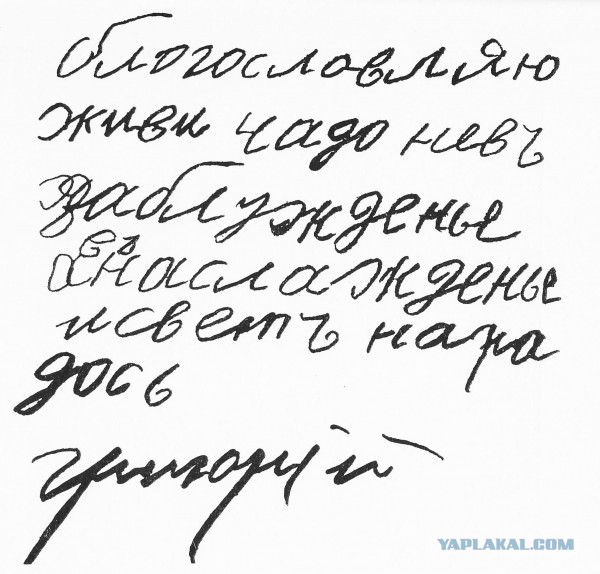 благословляю
живи чадо невъ
заблужденье
а въ наслажденье
исветъ нара
дось
григорий
YAPLAKAL.COM